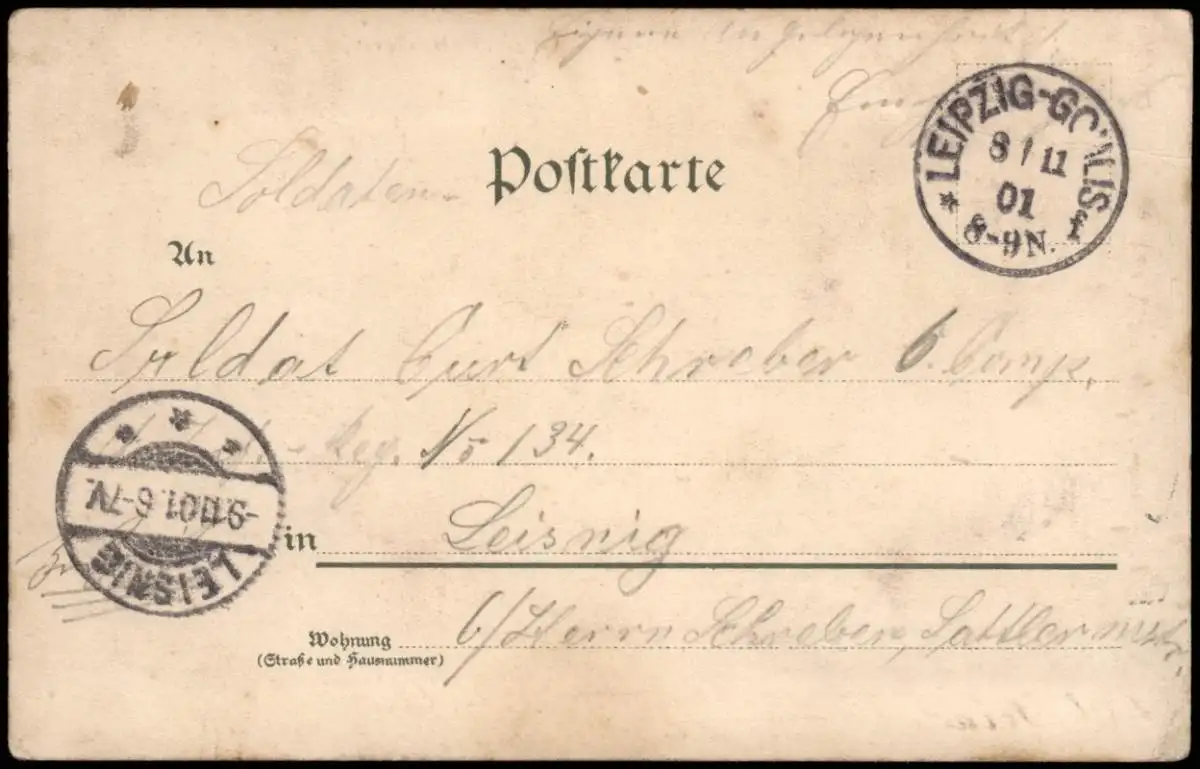 Eigene Angelegenheit d.
Empf
Soldaten-
Postkarte
LEIPZIG-GOHLIS
8/11
01
8-9N.
f
An
Soldat Curt Schreber 6. Comp.
Reg. No 134.
-9.11.01.6-7V.
LEISNIG
in Leisnig
Wohnung
(Straße und Hausnummer)
b/Herrn Schreber, Sattlermstr.